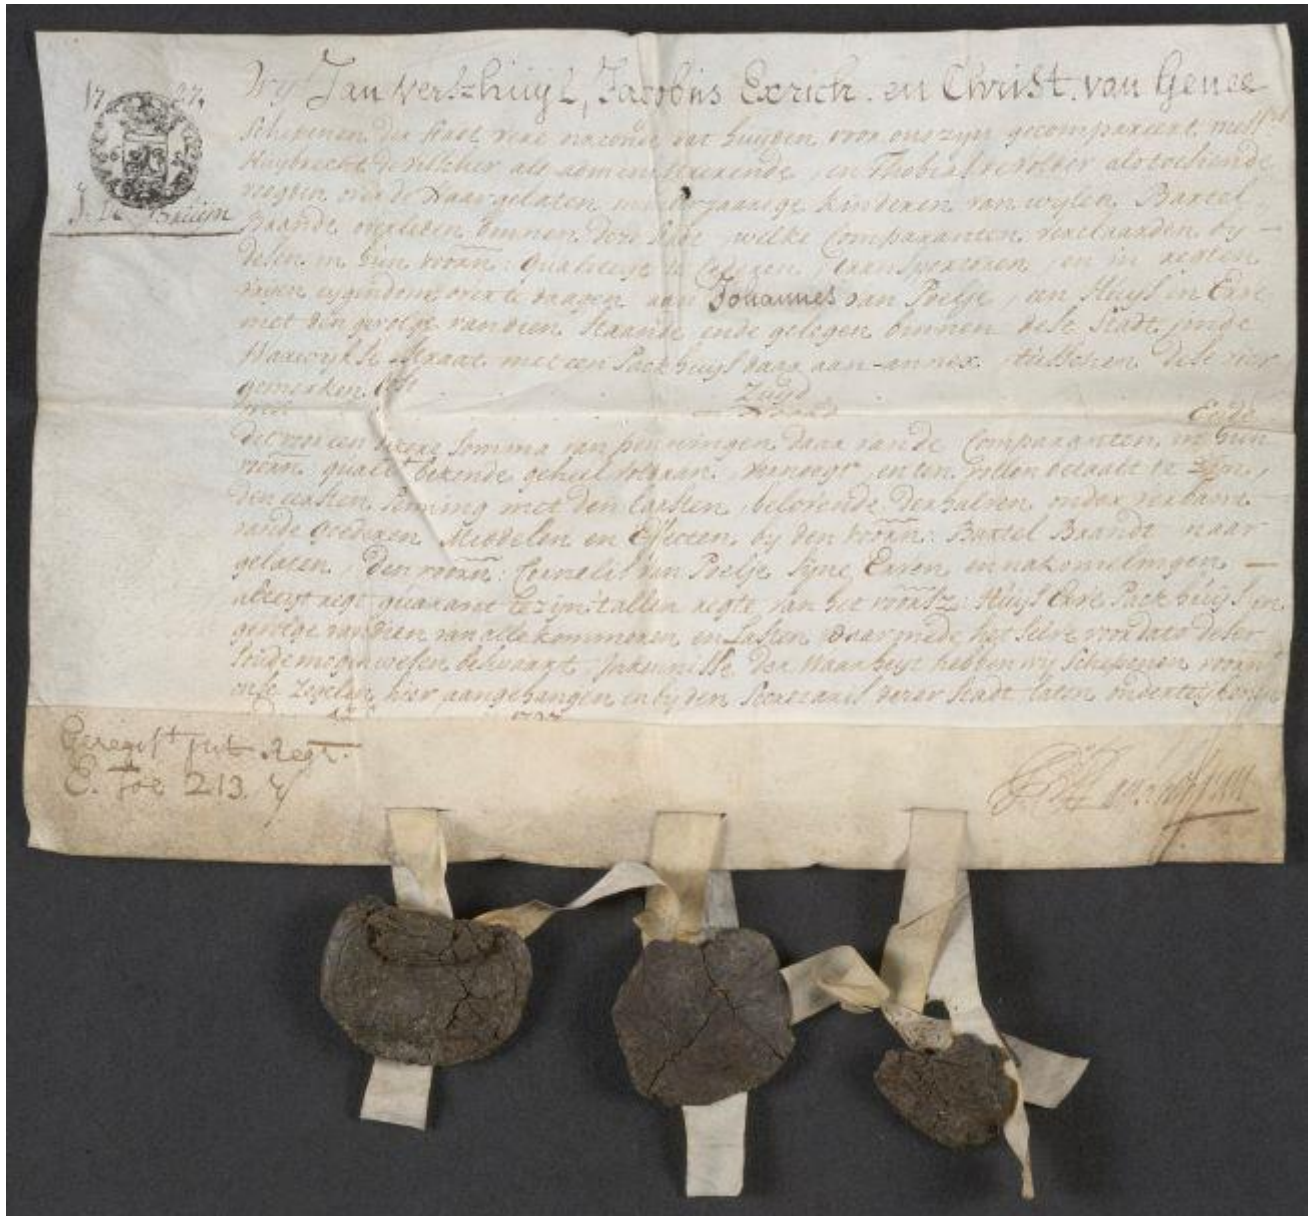 17 27.
J. De Bruijn
Wy Jan Verschuijl, Jacobus Exrich. en Christ. van Genee
Schepenen der Stadt Vere oirconde dat huyden voor ons zyn gecompareert
Huybrecht de Visscher als administrerende, en Thobias de Volder als toesiende
voogden over de Naargelaten minderjaarige kinderen van wylen Bartel
Brandt overleden binnen dese stede, welke Comparanten verclaarden by
desen in hun voorn: qualiteyt te cederen, transporteren, en in regten
vryen eygendom over te draagen aan Johannes van Poelje, een Huys en Erve
met den gevolge van dien staande ende gelegen binnen dese Stadt, inde
straat met een Packhuys daar aan-annex. tusschen dese vier
gemerken. Ost Zuyd
West Noord Ende
dit voor een sekere Somma van penningen daar van de Comparanten in hun
voorn: qualt. bekende geheel voldaan, vernoegt, en ten vollen betaalt te zyn,
den eersten Penning met den laesten, belovende derhalven onder verbant
vande Goederen Middelen en Effecten by den voorn: Bartel Brandt naar
gelaten, den voorn: Cornelis van Poelje syne Erven en nakomelingen —
altegt regt guarandt te zyn 't allen regte van het voorsz: Huys Erve Packhuys en
gevolge van dien van alle kommeren, en Lasten waarmede het selve voor dato deser
soude mogen wesen beswaart, Inkennisse der Waarheyt hebben wy Schepenen voornt
onse Zegelen hier aangehangen en by den Secretaris deser Stadt laten onderteykenen
1727
Geregist int Regr.
E. foe 213. v